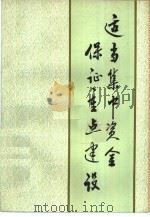 适当集中资金
保证重点建设